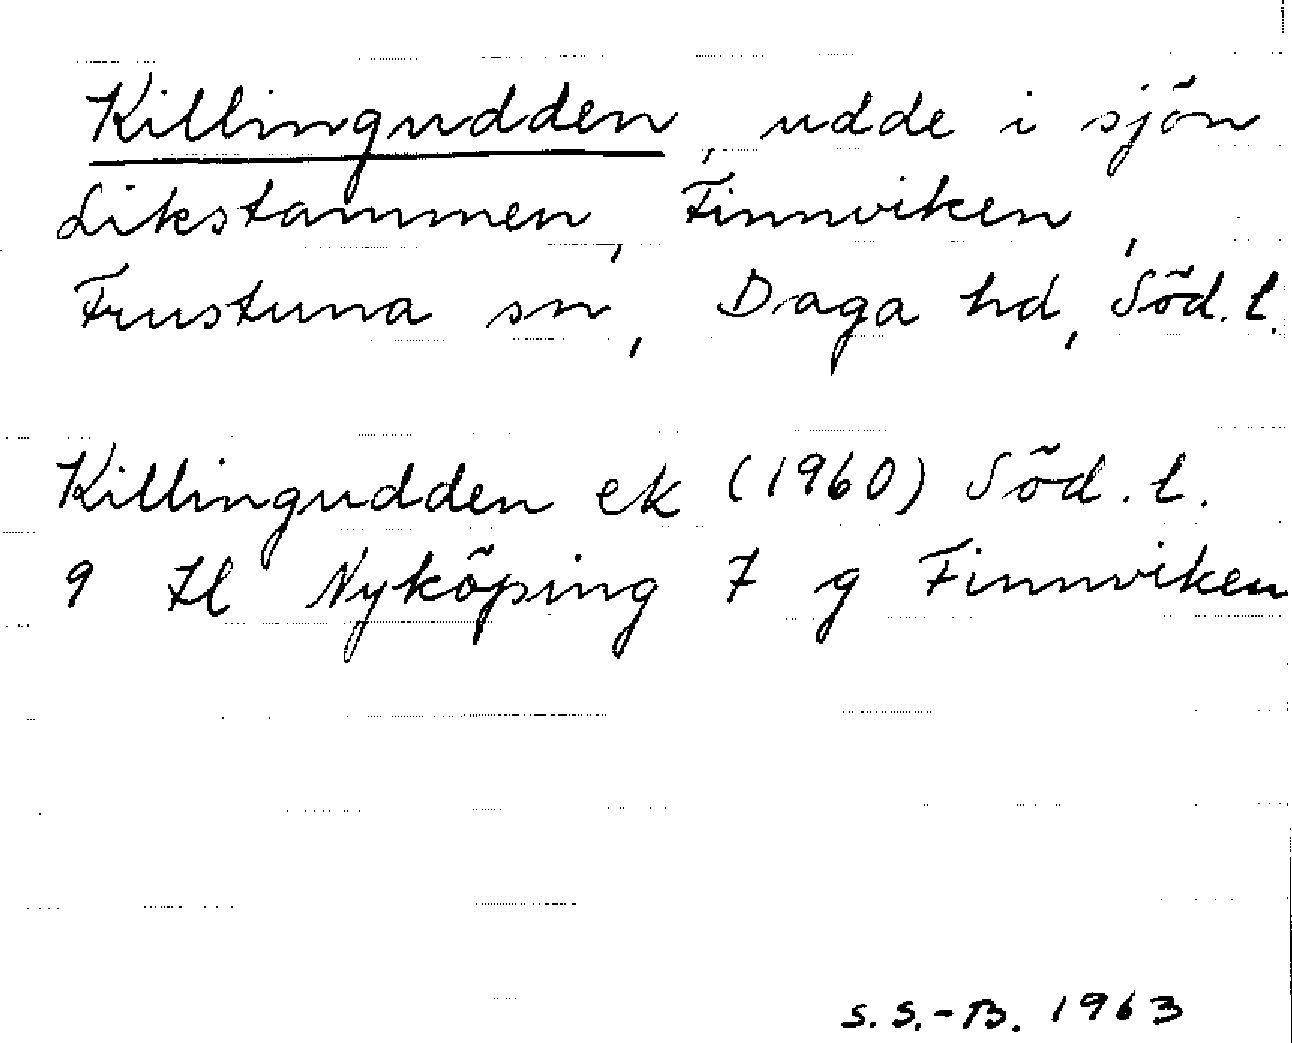 Killingudden, udde i sjön
Likstammen, Finnviken,
Frustuna sn, Daga hd, Söd. l.
Killingudden ek (1960) Söd. l.
9 Il Nyköping 7 g Finnviken
S. S.-B. 1963